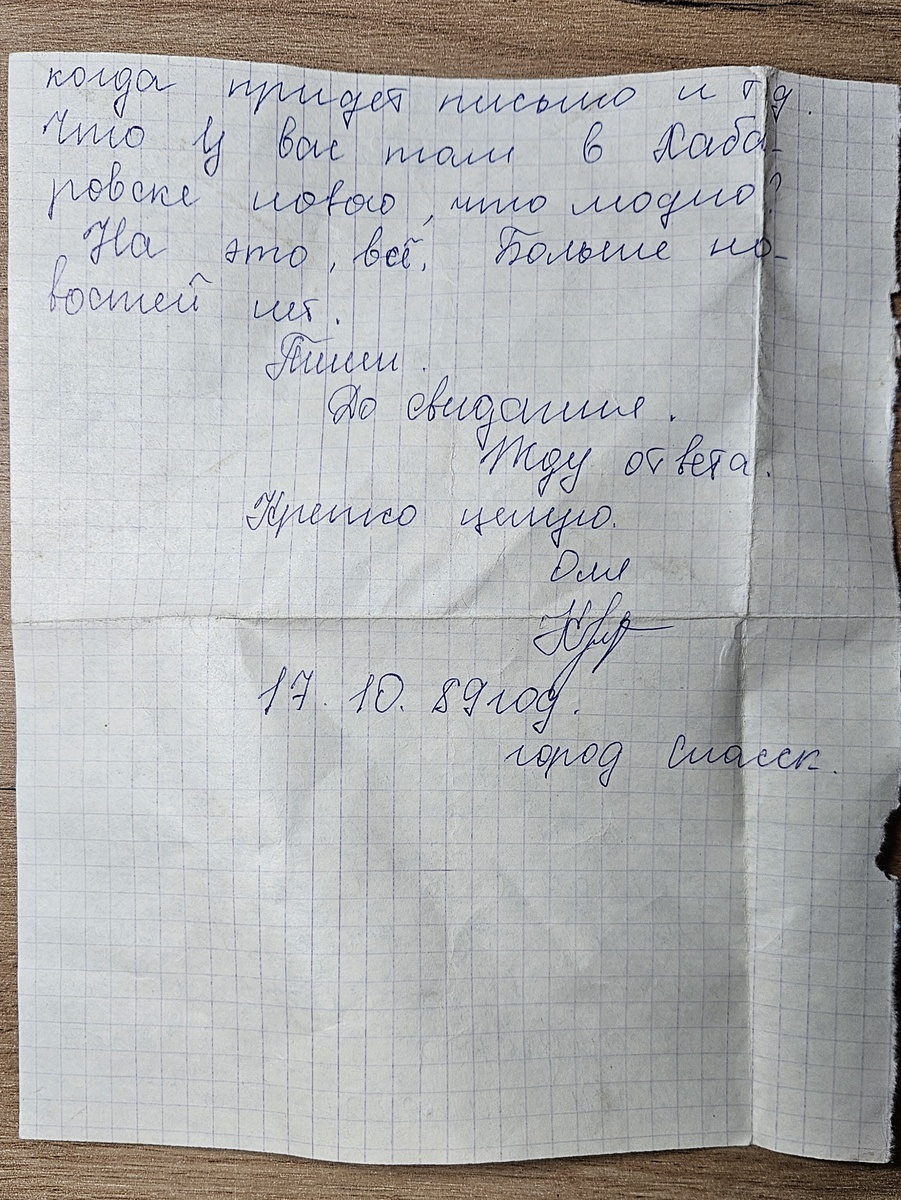 когда придет письмо и тд.
Что у вас там в Хаба-
ровске нового, что модно?
На это, всё. Больше но-
востей нет.
Пиши.
До свидания.
Жду ответа.
Крепко целую.
Оля
17. 10. 89 год.
город Спасск.